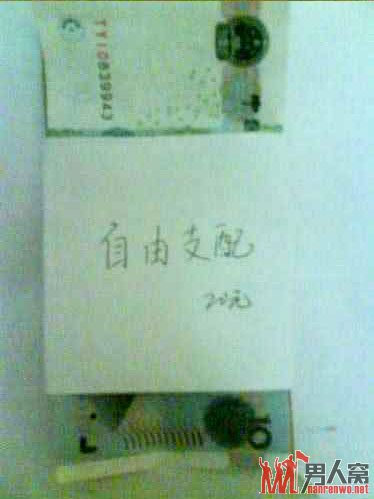 TY10839943
自由支配
20元
10
男人窝
nanrenwo.net